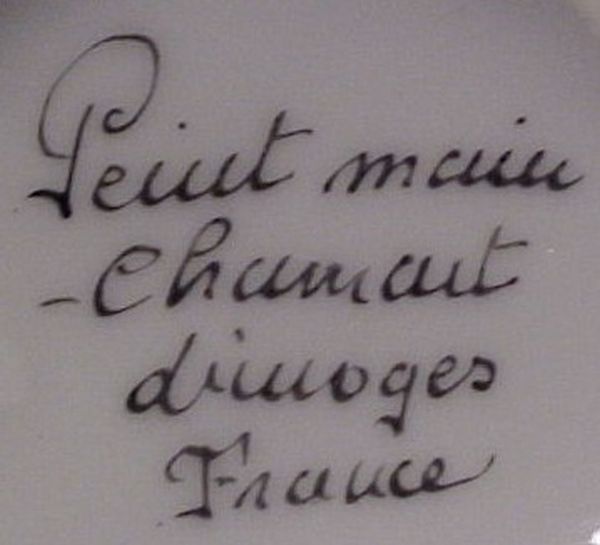 Peint main
-Chamart
Limoges
France